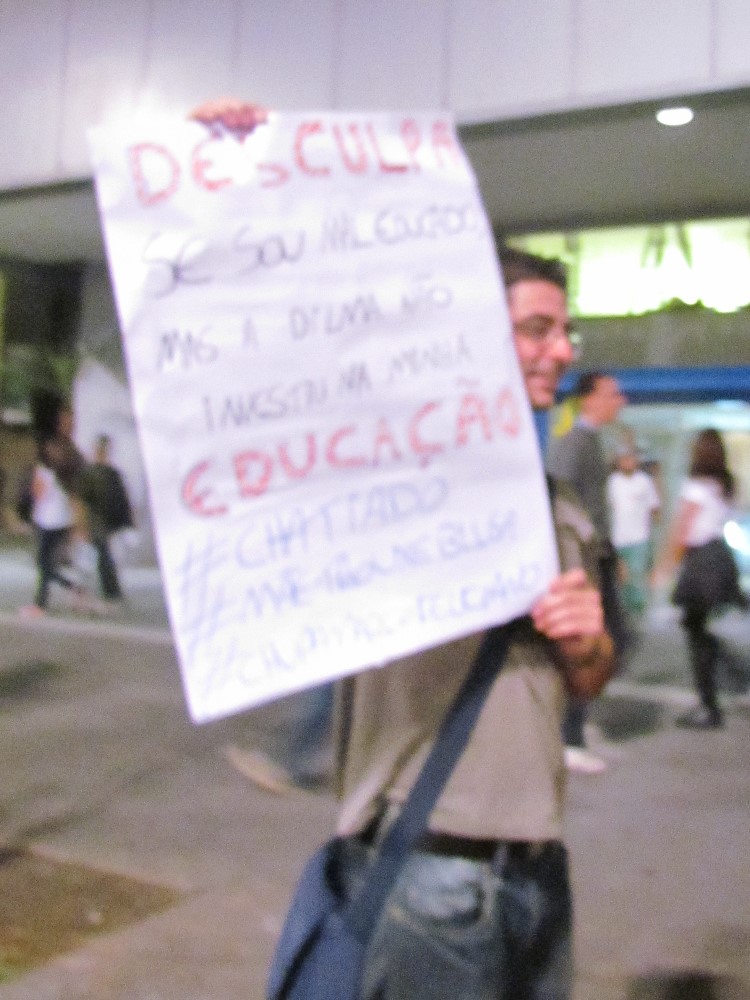 DESCULPA
SE SOU MAL EDUCADO,
MAS A DILMA NÃO
INVESTIU NA MINHA
EDUCAÇÃO
#CHATIADO